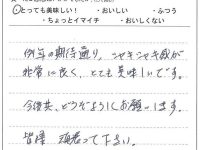 ・とっても美味しい！ ・おいしい ・ふつう
・ちょっとイマイチ ・おいしくない
例年の期待通り、シャキシャキ感が
非常に良く、とても美味しいです。
今後共、どうぞよろしくお願いします。
皆様 頑張って下さい。